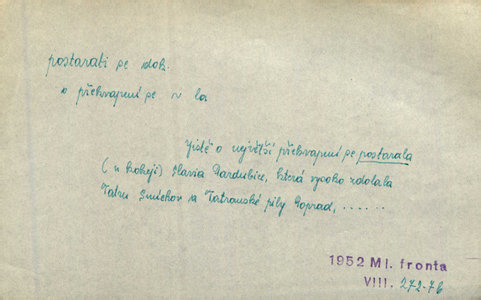 postarati se dok.
o překvapení se v la
Jistě o největší překvapení se postarala
(v hokeji) Slavia Pardubice, která vysoko zdolala
Tatru Smíchov a Tatranské pily Poprad, ......
1952 Ml. fronta
VIII. 272-7b